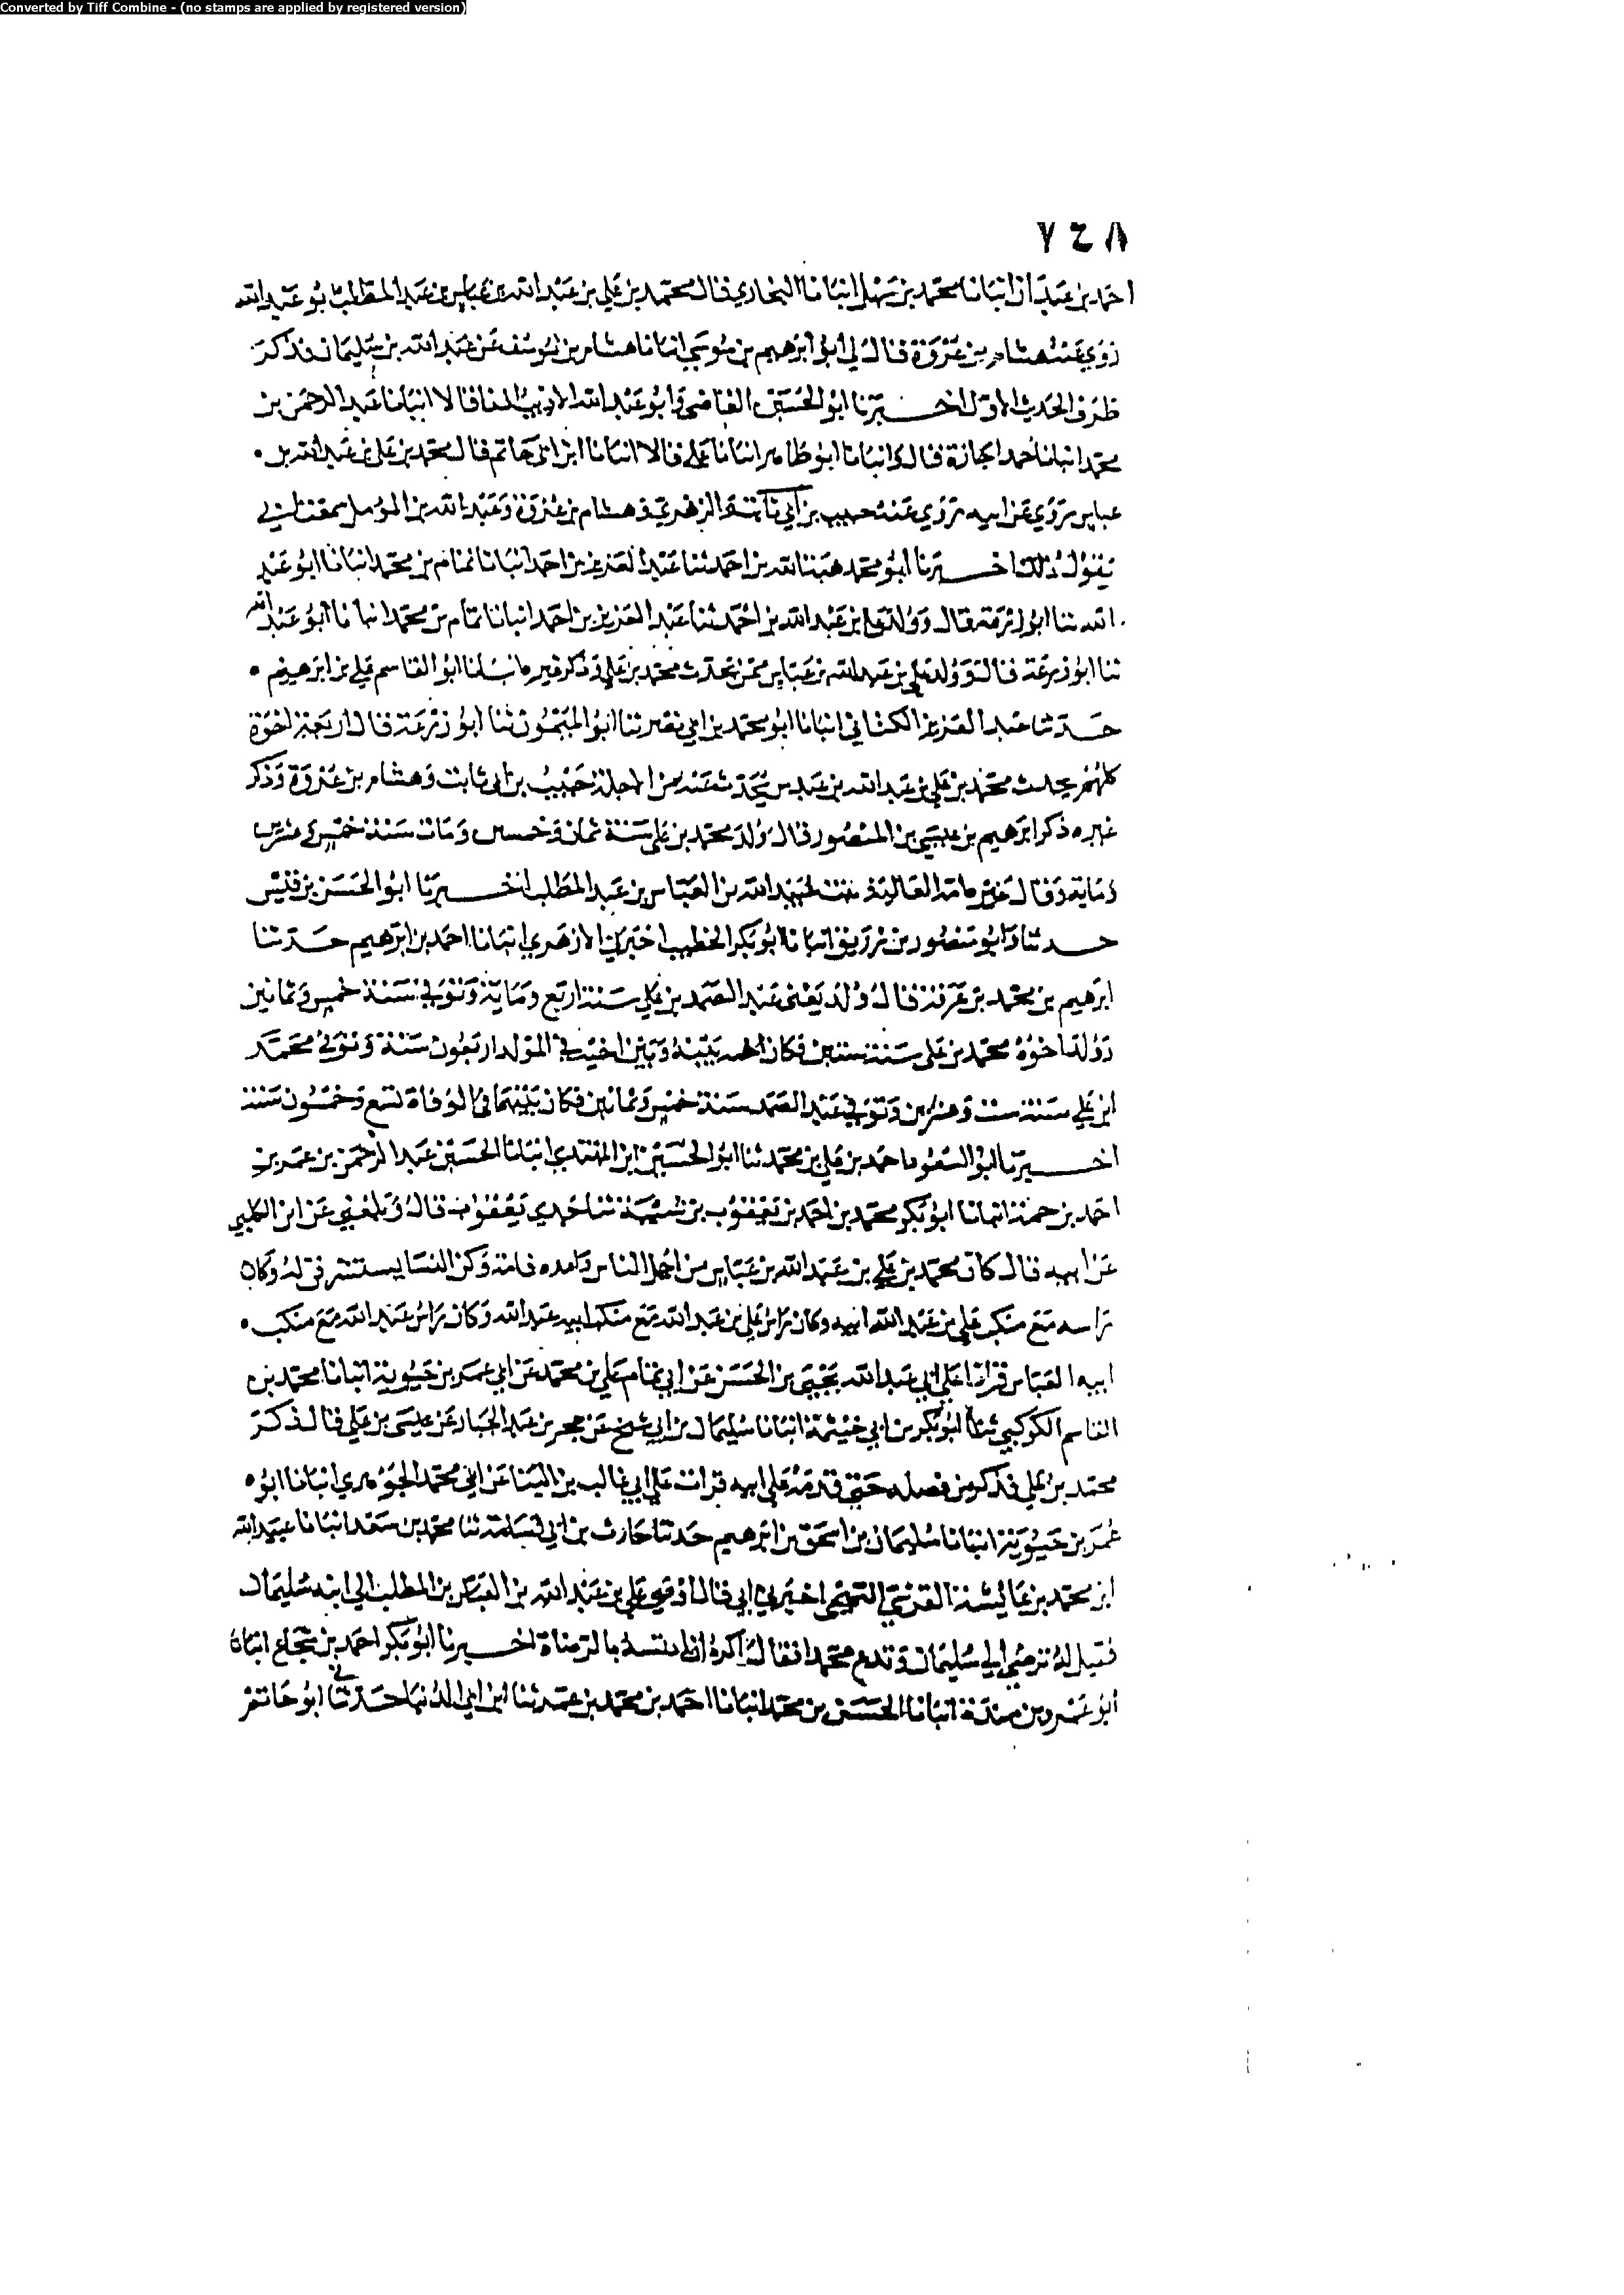 Converted by Tiff Combine - (no stamps are applied by registered version)
٧٤٨
احمد بن عبدان انبانا محمد بن سهل انبانا البخاري قال محمد بن علي بن عبد الله بن عباس بن عبد المطلب ابو عبد الله
روي عنه هشام بن عروة قال لي ابو ابرهيم بن موسى انبانا هشام بن يوسف عن عبد الله بن سليمان فذكر
طرف الحديث الاول اخبرنا ابو الحسين القاضي وابو عبد الله الاديب قالا انبانا عبد الرحمن بن
محمد انبانا احمد اجازة قال وانبانا ابو طاهر انبانا علي قالا انبانا ابن ابي حاتم قال محمد بن علي بن عبد الله بن
عباس روي عن ابيه روي عنه حبيب بن ابي ثابت والزهري وهشام بن عروة وعبد الله بن المؤمل سمعت ابي
يقول ذلك اخبرنا ابو محمد هبة الله بن احمد ثنا عبد العزيز بن احمد انبانا تمام بن محمد انبانا ابو عبد
الله ثنا ابو زرعة قال وولد علي بن عبد الله بن احمد ثنا عبد العزيز بن احمد انبانا تمام بن محمد انبانا ابو عبد الله
ثنا ابو زرعة قال وولد علي بن عبد الله بن عباس ممن يحدث محمد بن علي وذكر غيره انبانا ابو القاسم علي بن ابرهيم
حدثنا عبد العزيز الكتاني انبانا ابو محمد بن ابي نصر ثنا ابو الميمون ثنا ابو زرعة قال اربعة اخوة
كلهم يحدث محمد بن علي بن عبد الله بن عباس يحدث عنه من الاجلة حبيب بن ابي ثابت وهشام بن عروة وذكر
غيره ذكر ابرهيم بن عيسى بن المنصور قال ولد محمد بن علي سنة ثمان وخمسين ومات سنة خمس وعشرين
ومايه وقال غيره امه العالية بنت عبيد الله بن العباس بن عبد المطلب اخبرنا ابو الحسن بن قبيس
حدثنا وابو منصور بن زريق انبانا ابو بكر الخطيب اخبرني الازهري انبانا احمد بن ابرهيم حدثنا
ابرهيم بن محمد بن عرفة قال ولد يعني عبد الصمد بن علي سنة اربع ومايه وتوفي سنة خمس وثمانين
وولد اخوه محمد بن علي سنة ستين فكان بينه وبين اخيه في المولد اربعون سنة وتوفي محمد
ابن علي سنة ست وعشرين وتوفي عبد الصمد سنة خمس وثمانين فكان بينهما في الوفاة تسع وخمسون سنة
اخبرنا ابو السعود احمد بن علي بن محمد ثنا ابو الحسين ابن المهتدي انبانا الحسين عبد الرحمن بن عمر بن
احمد بن حمة انبانا ابو بكر محمد بن احمد بن يعقوب بن شيبة ثنا جدي يعقوب قال وبلغني عن ابن الكلبي
عن ابيه قال كان محمد بن علي بن عبد الله بن عباس من اجمل الناس وامده قامة وكن النسا يستشرفن له وكان
راسه مع منكب علي بن عبد الله ابيه وكان راس علي بن عبد الله مع منكب ابيه عبد الله وكان راس عبد الله مع منكب
ابيه العباس قرانا علي ابي عبد الله يحيى بن الحسن عن ابي تمام علي بن محمد عن ابي عمر بن حيوية انبانا محمد بن
القاسم الكوكبي ثنا ابو بكر بن ابي خيثمة انبانا سليمان بن ابي شيخ عن حجر بن عبد الجبار عن عيسى بن علي قال ذكر
محمد بن علي فذكر من فضله حتى قدمه على ابيه قرات على ابي غالب بن البنا عن ابي محمد الجوهري انبانا ابو
عمر بن حيوية انبانا سليمان بن اسحق بن ابرهيم حدثنا حارث بن ابي اسامة ثنا محمد بن سعد انبانا عبيد الله
ابن محمد بن عايشة القرشي التيمي اخبرني ابي قال اوصى علي بن عبد الله بن العباس بن المطلب الى ابنه سليمان
فقيل له توصي الى سليمان وتدع محمدا فقال اكره ان ادنسه بالوصاة اخبرنا ابو بكر احمد بن شجاع انبانا
ابو عمرو بن مندة انبانا الحسن بن محمد انبانا احمد بن محمد بن عمر ثنا ابن ابي الدنيا حدثني ابو حاتم